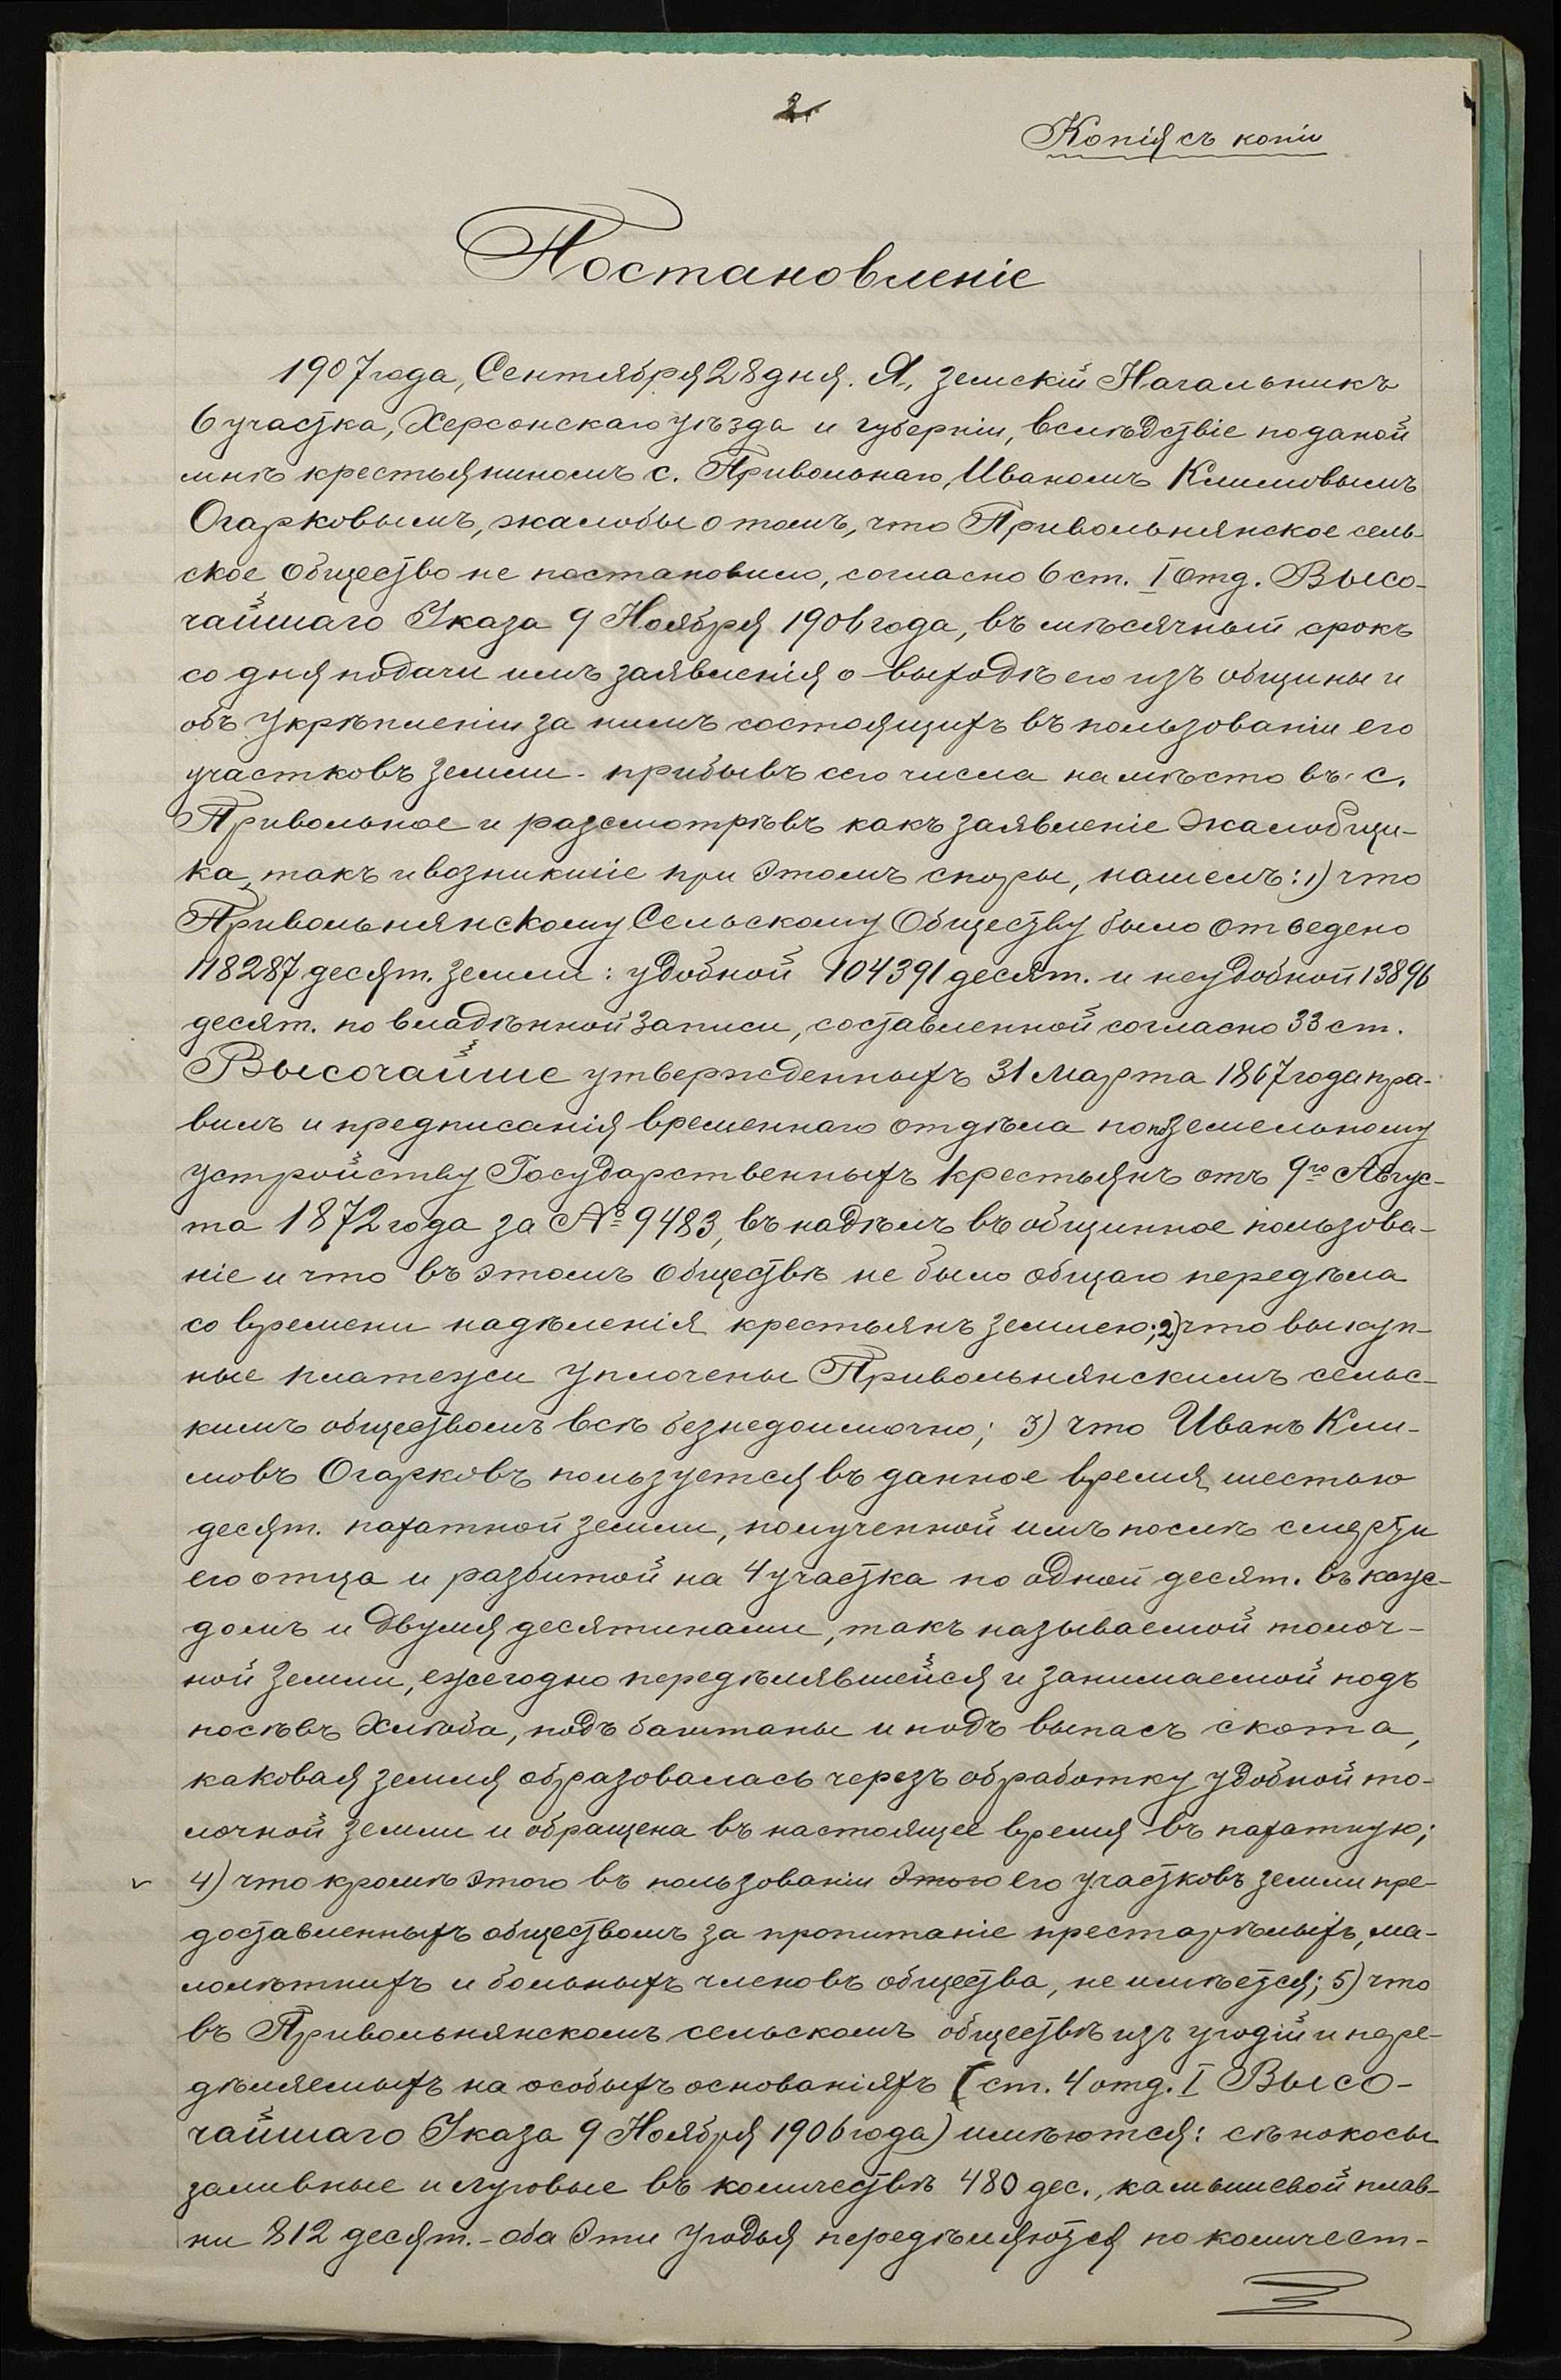 2.
Копія съ копіи
Постановленіе
1907 года, Сентября 28 дня. Я, земскій Начальникъ
6 участка, Херсонскаго уѣзда и губерніи, вслѣдствіе поданой
мнѣ крестьяниномъ с. Привольнаго, Иваномъ Климовымъ
Огарковымъ, жалобы о томъ, что Привольнянское сель-
ское общество не постановило, согласно 6 ст. I отд. Высо-
чайшаго Указа 9 Ноября 1906 года, въ мѣсячный срокъ
со дня подачи имъ заявленія о выходѣ его изъ общины и
объ укрѣпленіи за нимъ состоящихъ въ пользованіи его
участковъ земли - прибывъ сего числа на мѣсто въ с.
Привольное и разсмотрѣвъ какъ заявленіе жалобщи-
ка, такъ и возникшіе при этомъ споры, нашелъ: 1) что
Привольнянскому Сельскому Обществу было отведено
118287 десят. земли: удобной 104391 десят. и неудобной 13896
десят. по владѣнной записи, составленной согласно 33 ст.
Высочайше утвержденныхъ 31 Марта 1867 года пра-
вилъ и предписанія временнаго отдѣла по поземельному
устройству Государственныхъ крестьянъ отъ 9го Авгус-
та 1872 года за № 9483, въ надѣлъ въ общинное пользова-
ніе и что въ этомъ обществѣ не было общаго передѣла
со времени надѣленія крестьянъ землею; 2) что выкуп-
ные платежи уплочены Привольнянскимъ сельс-
кимъ обществомъ всѣ безнедоимочно; 3) что Иванъ Кли-
мовъ Огарковъ пользуется въ данное время шестью
десят. пахатной земли, полученной имъ послѣ смерти
его отца и разбитой на 4 участка по одной десят. въ каж-
домъ и двумя десятинами, такъ называемой толоч-
ной земли, ежегодно передѣлявшейся и занимаемой подъ
посѣвъ хлѣба, подъ баштаны и подъ выпасъ скота,
каковая земля образовалась черезъ обработку удобной то-
лочной земли и обращена въ настоящее время въ пахатную;
4) что кромѣ этого въ пользованіи этого его участковъ земли пре-
доставленныхъ обществомъ за пропитаніе престарѣлыхъ, ма-
лолѣтнихъ и больныхъ членовъ общества, не имѣется; 5) что
въ Привольнянскомъ сельскомъ обществѣ изъ угодій и пере-
дѣляемыхъ на особыхъ основаніяхъ (ст. 4 отд. I Высо-
чайшаго Указа 9 Ноября 1906 года) имѣются: сѣнокосы
заливные и луговые въ количествѣ 480 дес., камышевой плав-
ни 812 десят. - оба эти угодья передѣляются по количест-